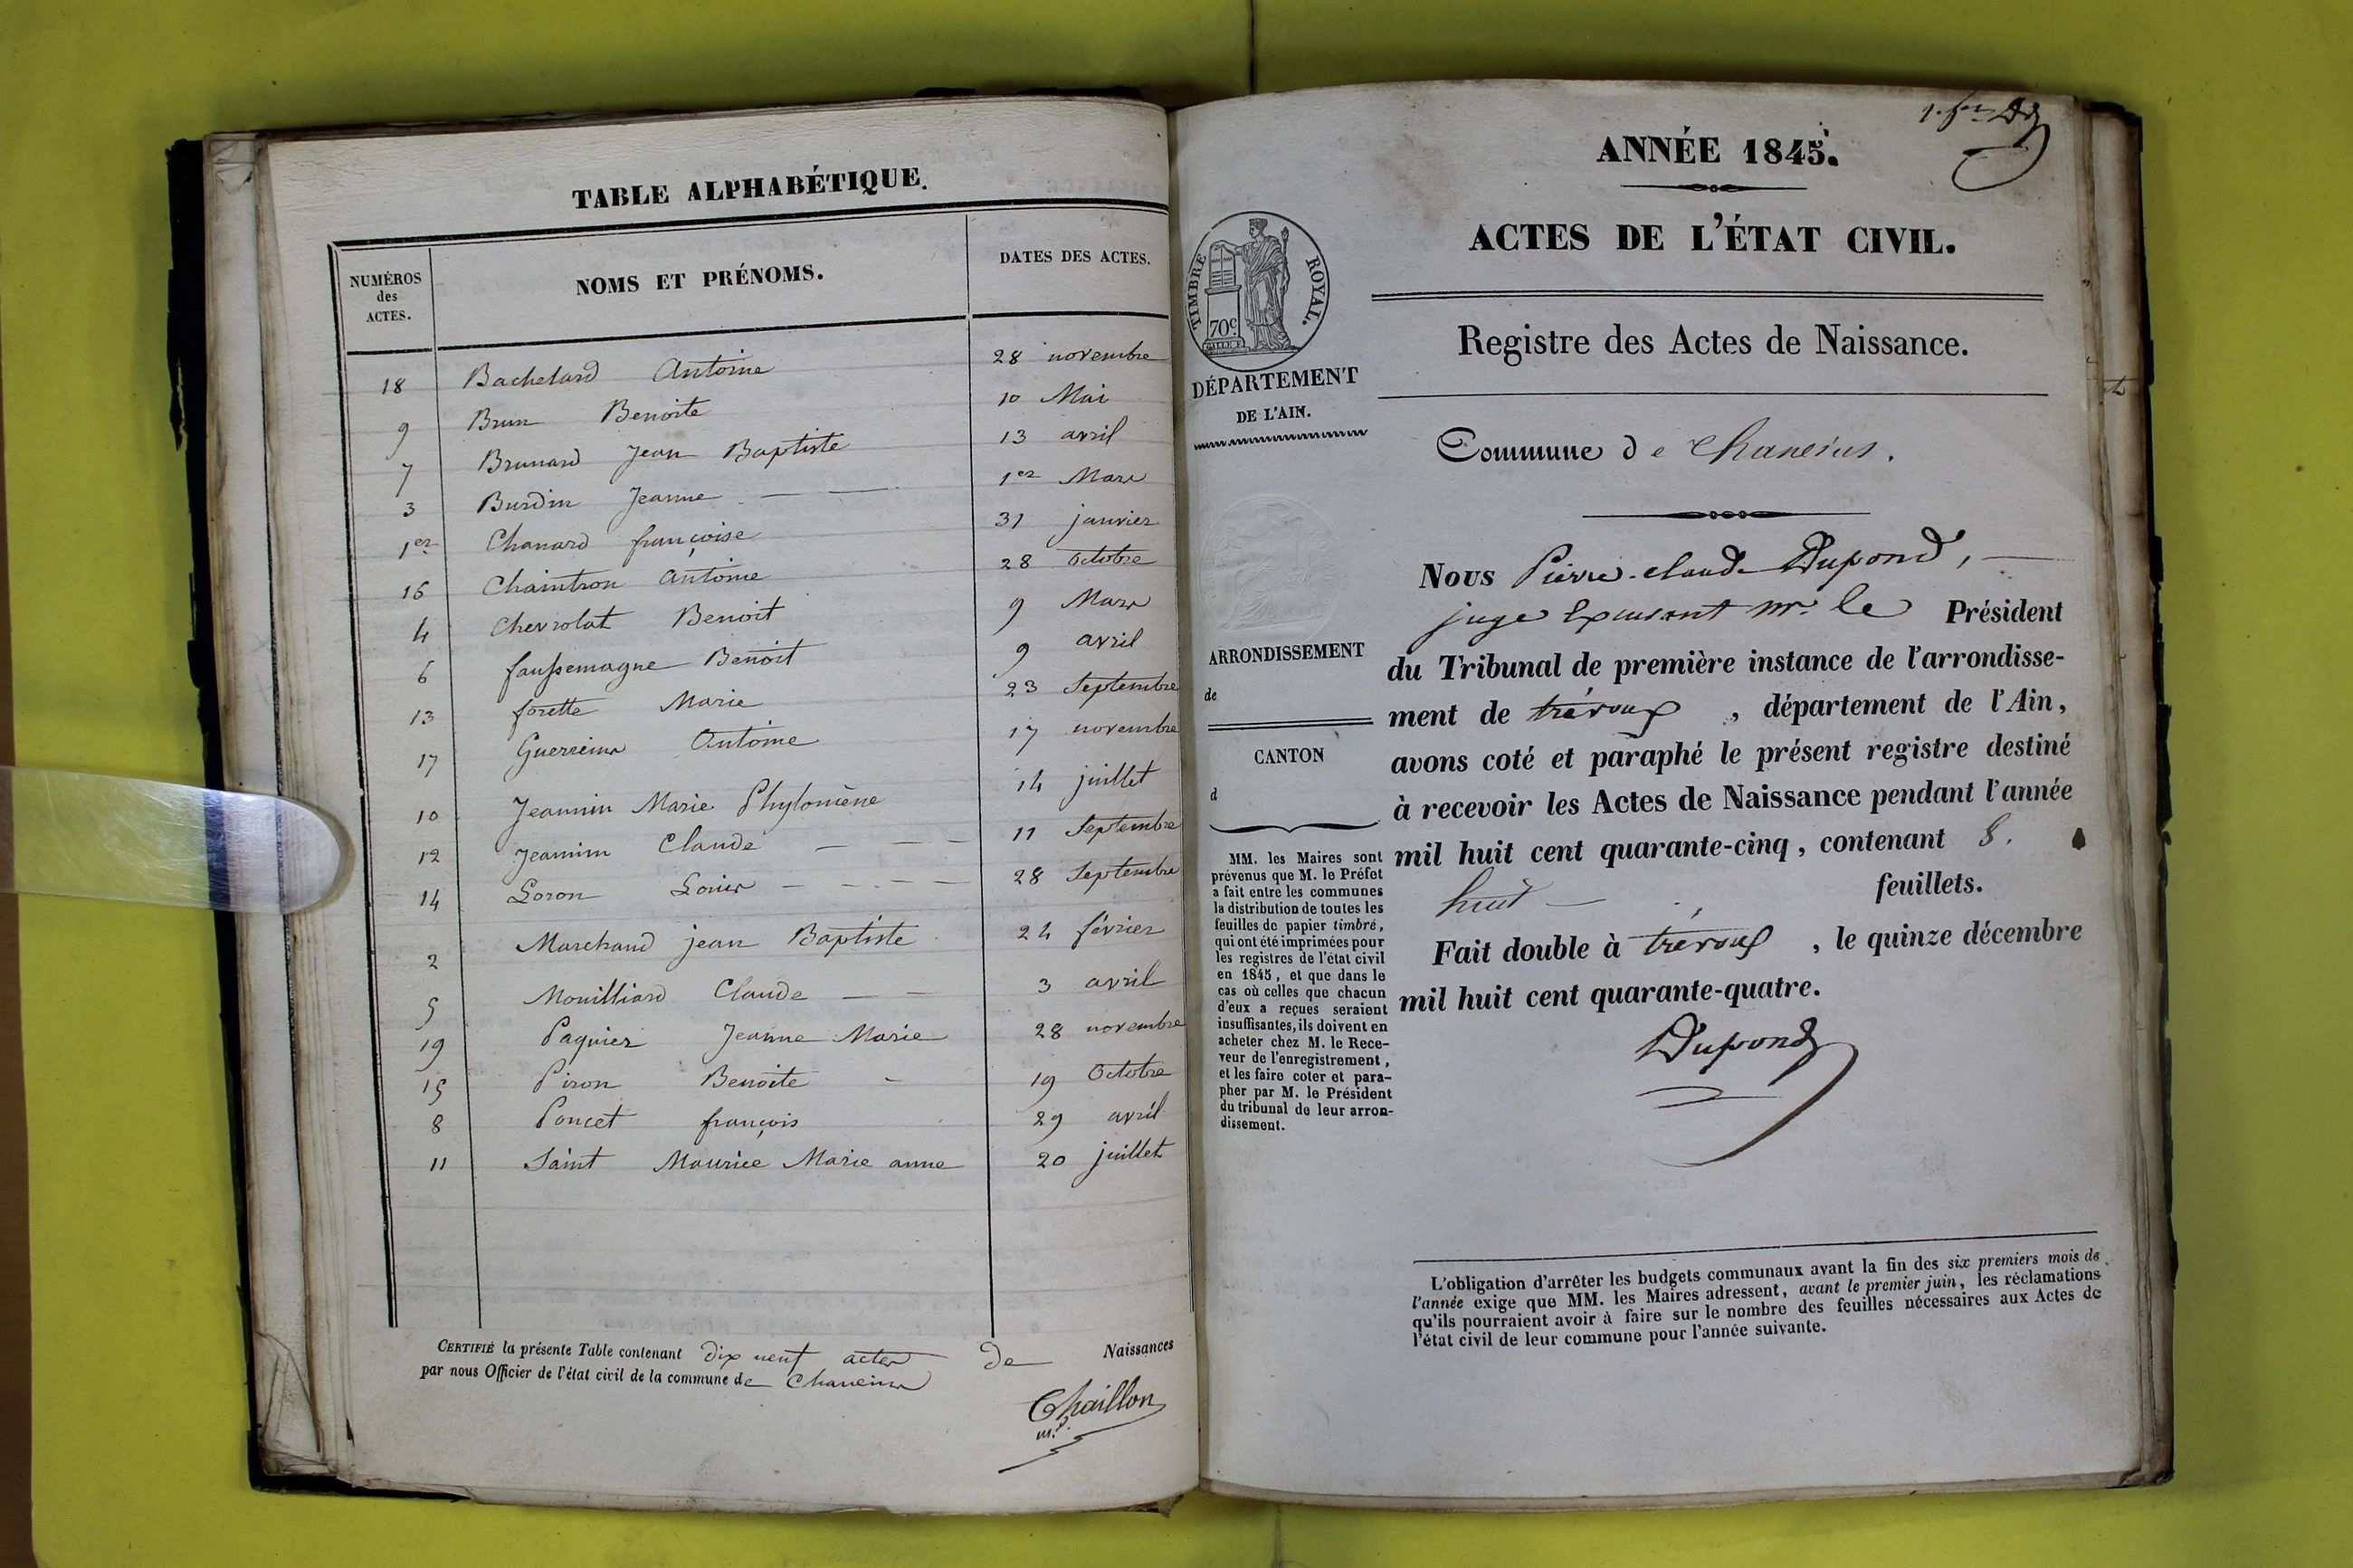 TABLE ALPHABÉTIQUE.
NUMÉROS des ACTES. NOMS ET PRÉNOMS. DATES DES ACTES.
18 Bachelard Antoine 28 novembre
9 Brun Benoite 10 Mai
7 Brunard Jean Baptiste 13 avril
3 Burdin Jeanne 1er Mars
1er Chanard françoise 31 janvier
16 Chaintron Antoine 28 Octobre
4 Chevrolat Benoit 9 Mars
6 faussemagne Benoit 9 avril
13 forette Marie 23 Septembre
17 Guerreins Antoine 17 novembre
10 Jeannin Marie Phylomène 14 juillet
12 Jeannin Claude 11 Septembre
14 Loron Louis 28 Septembre
2 Marchand jean Baptiste 24 février
5 Mouilliard Claude 3 avril
19 Paquier Jeanne Marie 28 novembre
15 Piron Benoite 19 Octobre
8 Poncet françois 29 avril
11 Saint Maurice Marie anne 20 juillet
CERTIFIÉ la présente Table contenant dix neuf actes de Naissances
par nous Officier de l'état civil de la commune de Chaneins
Chaillon
m.
ANNÉE 1845.
ACTES DE L'ÉTAT CIVIL.
TIMBRE ROYAL.
70c.
DÉPARTEMENT
DE L'AIN.
Registre des Actes de Naissance.
Commune de Chaneins.
ARRONDISSEMENT
de
CANTON
d
MM. les Maires sont
prévenus que M. le Préfet
a fait entre les communes
la distribution de toutes les
feuilles de papier timbré,
qui ont été imprimées pour
les registres de l'état civil
en 1845, et que dans le
cas où celles que chacun
d'eux a reçues seraient
insuffisantes, ils doivent en
acheter chez M. le Rece-
veur de l'enregistrement,
et les faire coter et para-
pher par M. le Président
du tribunal de leur arron-
dissement.
Nous Pierre-claude Dupond,
juge Expensant mr. le Président
du Tribunal de première instance de l'arrondisse-
ment de trévoux, département de l'Ain,
avons coté et paraphé le présent registre destiné
à recevoir les Actes de Naissance pendant l'année
mil huit cent quarante-cinq, contenant 8.
huit feuillets.
Fait double à trévoux, le quinze décembre
mil huit cent quarante-quatre.
Dupond
L'obligation d'arrêter les budgets communaux avant la fin des six premiers mois de
l'année exige que MM. les Maires adressent, avant le premier juin, les réclamations
qu'ils pourraient avoir à faire sur le nombre des feuilles nécessaires aux Actes de
l'état civil de leur commune pour l'année suivante.